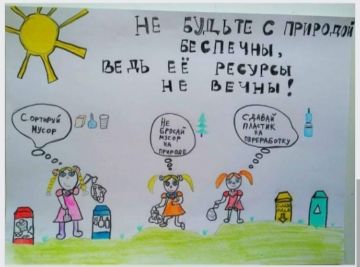 НЕ БУДЬТЕ С ПРИРОДОЙ
БЕСПЕЧНЫ,
ВЕДЬ ЕЁ РЕСУРСЫ
НЕ ВЕЧНЫ!
СОРТИРУЙ
МУСОР
НЕ
БРОСАЙ
МУСОР
НА
ПРИРОДЕ
СДАВАЙ
ПЛАСТИК
НА
ПЕРЕРАБОТКУ